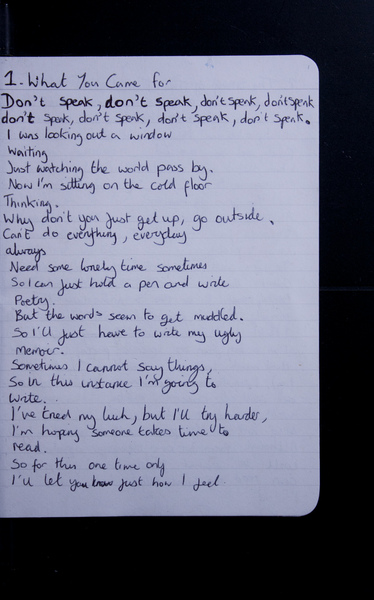 1. What You Came for
Don't speak, don't speak, don't speak, don't speak
don't speak, don't speak, don't speak, don't speak.
I was looking out a window
Waiting
Just watching the world pass by.
Now I'm sitting on the cold floor
Thinking.
Why don't you just get up, go outside.
Can't do everything, everyday
always
Need some lonely time sometimes
So I can just hold a pen and write
Poetry.
But the words seem to get muddled.
So I'll just have to write my ugly
memoir.
Sometimes I cannot say things,
So in this instance I'm going to
write.
I've tried my luck, but I'll try harder,
I'm hoping someone takes time to
read.
So for this one time only
I'll let you know just how I feel.